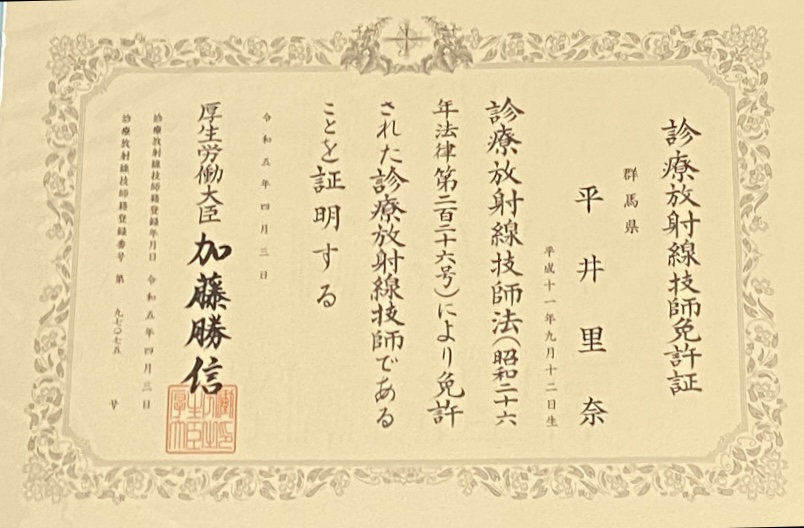 診療放射線技師免許証
群馬県
平井里奈
平成十一年九月十二日生
診療放射線技師法(昭和二十六
年法律第二百二十六号)により免許
された診療放射線技師である
ことを証明する
令和五年四月三日
厚生労働大臣 加藤勝信
診療放射線技師籍登録年月日 令和五年四月三日
診療放射線技師籍登録番号 第 九七〇七五 号